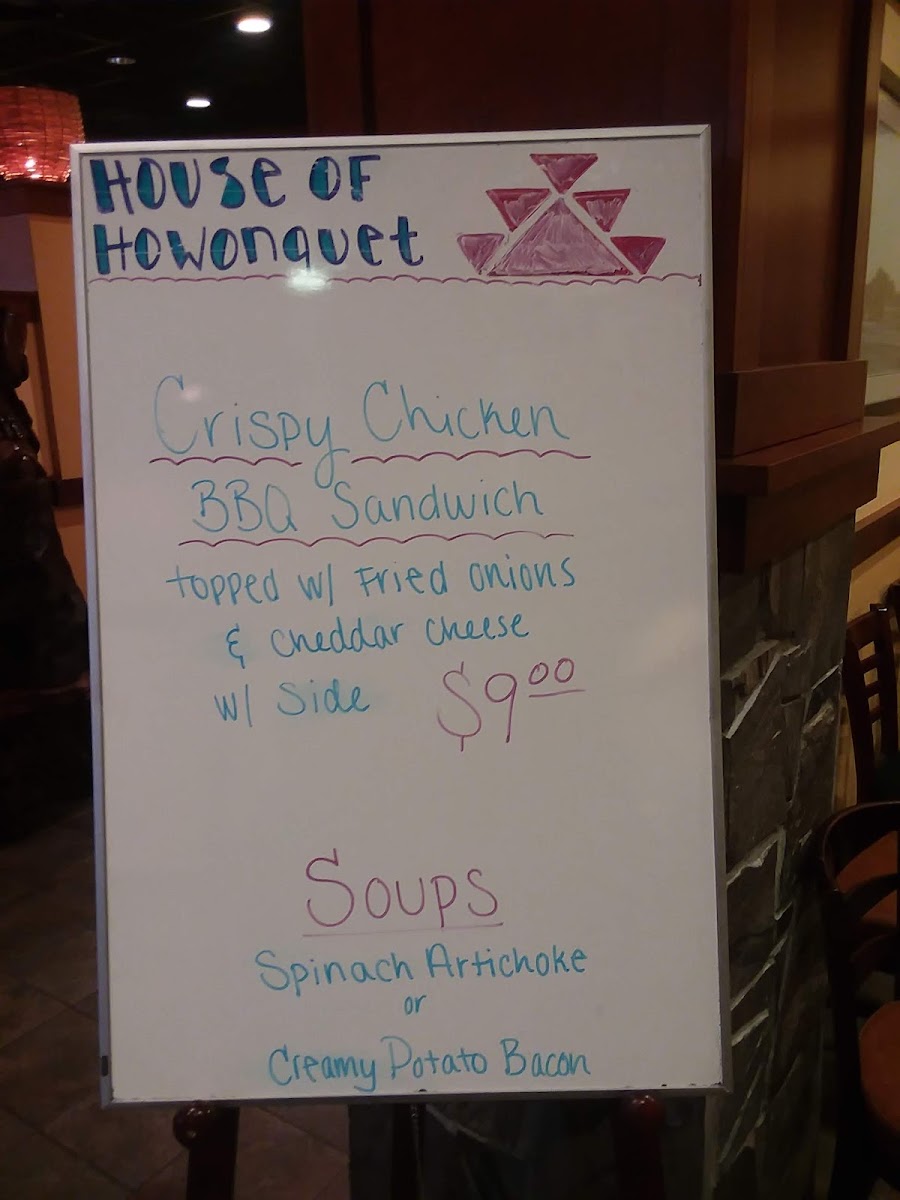 House of
Howonquet
Crispy Chicken
BBQ Sandwich
topped w/ Fried onions
& cheddar cheese
w/ Side $9.00
Soups
Spinach Artichoke
or
Creamy Potato Bacon